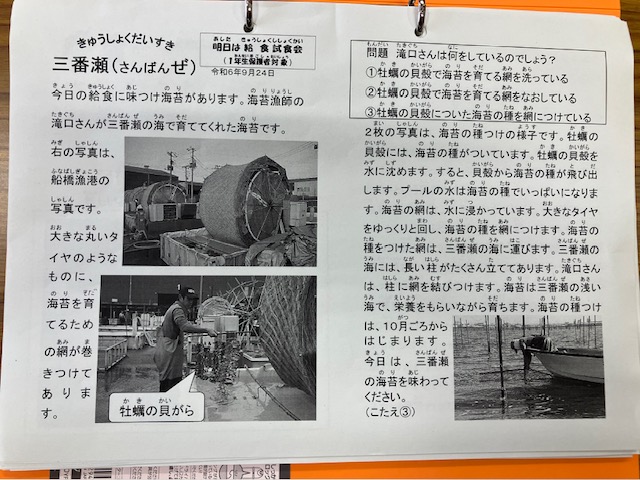 きゅうしょくだいすき
三番瀬(さんばんぜ)
明日は給食試食会
(1年生保護者対象)
令和6年9月24日
今日の給食に味つけ海苔があります。海苔漁師の
滝口さんが三番瀬の海で育ててくれた海苔です。
右の写真は、
船橋漁港の
写真です。
大きな丸いタ
イヤのような
ものに、
海苔を育
てるため
の網が巻
きつけて
ありま
す。
牡蠣の貝がら
問題 滝口さんは何をしているのでしょう?
①牡蠣の貝殻で海苔を育てる網を洗っている
②牡蠣の貝殻で海苔を育てる網をなおしている
③牡蠣の貝殻についた海苔の種を網につけている
2枚の写真は、海苔の種つけの様子です。牡蠣の
貝殻には、海苔の種がついています。牡蠣の貝殻を
水に沈めます。すると、貝殻から海苔の種が飛び出
します。プールの水は海苔の種でいっぱいになりま
す。海苔の網は、水に浸かっています。大きなタイヤ
をゆっくりと回し、海苔の種を網につけます。海苔の
種をつけた網は、三番瀬の海に運びます。三番瀬の
海には、長い柱がたくさん立ててあります。滝口さん
は、柱に網を結びつけます。海苔は三番瀬の浅い
海で、栄養をもらいながら育ちます。海苔の種つけ
は、10月ごろから
はじまります。
今日は、三番瀬
の海苔を味わって
ください。
(こたえ③)